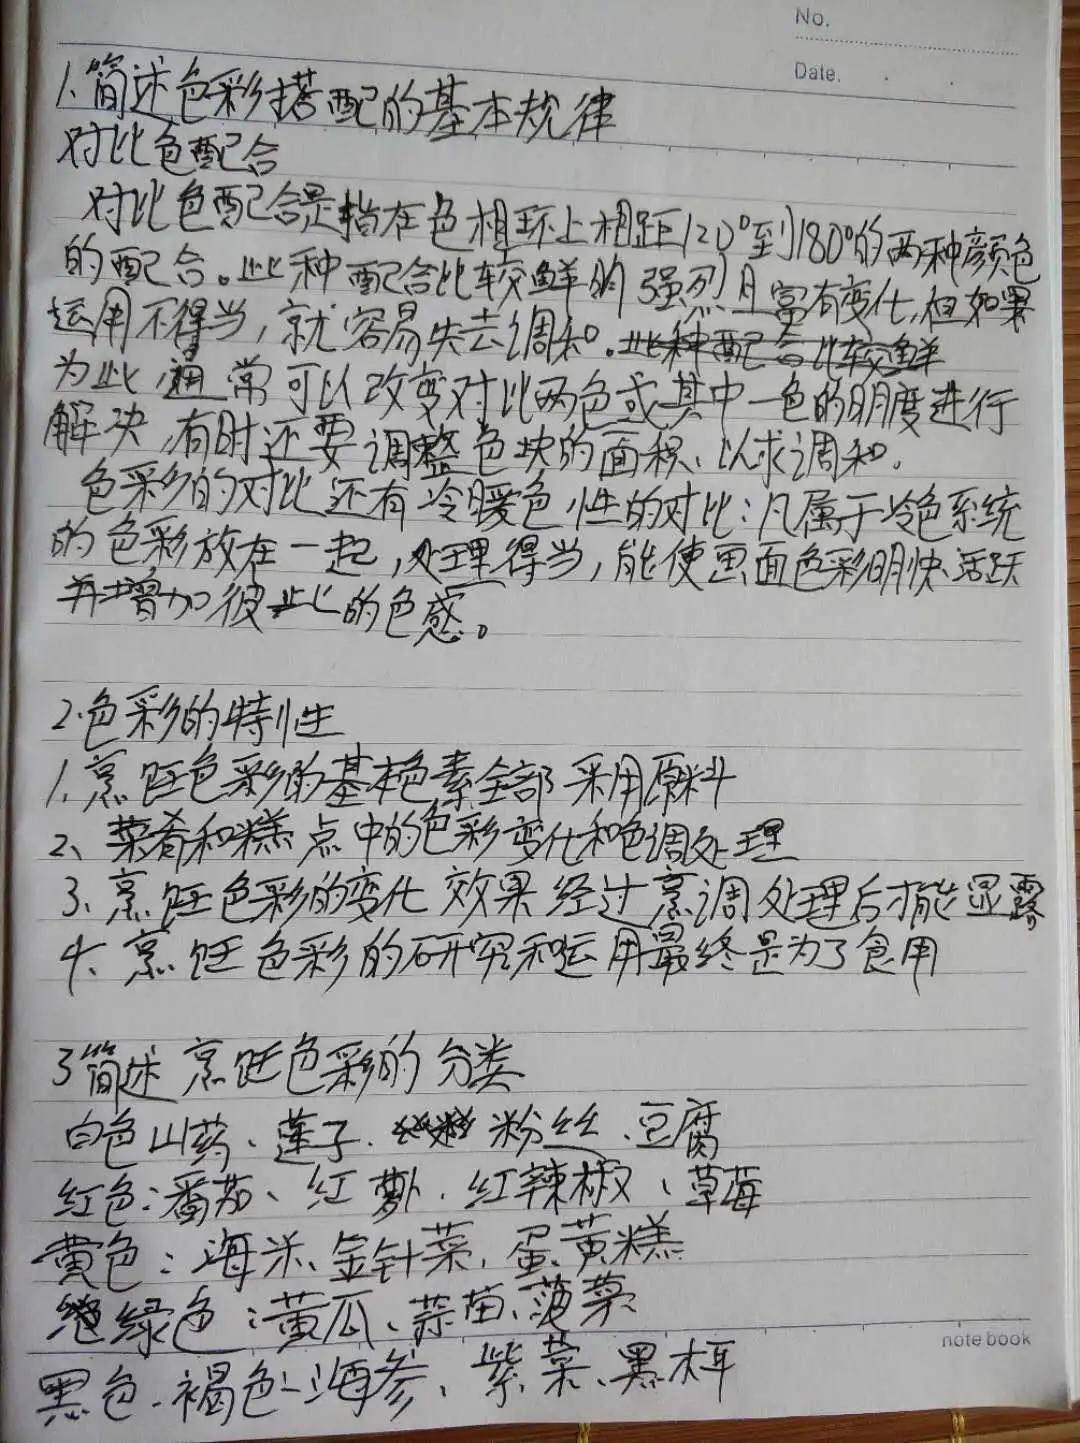 No.
Date.
1.简述色彩搭配的基本规律
对比色配合
对比色配合是指在色相环上相距120°到180°的两种颜色
的配合。此种配合比较鲜明 强烈且富有变化,但如果
运用不得当,就容易失去调和.此种配合比较鲜
为此 通常可以改变对比两色或其中一色的明度进行
解决,有时还要调整色块的面积、以求调和.
色彩的对比还有冷暖色性的对比:凡属于冷色系统
的色彩放在一起,处理得当,能使画面色彩明快活跃
并增加彼此的色感。
2.色彩的特性
1.烹饪色彩的基本色素全部采用原料
2、菜肴和糕点中的色彩变化和色调处理
3、烹饪色彩的变化效果经过烹调处理后才能显露
4、烹饪色彩的研究和运用最终是为了食用
3简述烹饪色彩的分类
白色山药、莲子. 粉丝、豆腐
红色:番茄、红萝卜.红辣椒、草莓
黄色:海米、金针菜,蛋黄糕
绿色:黄瓜、蒜苗、菠菜
黑色.褐色-海参、紫菜、黑木耳
note book